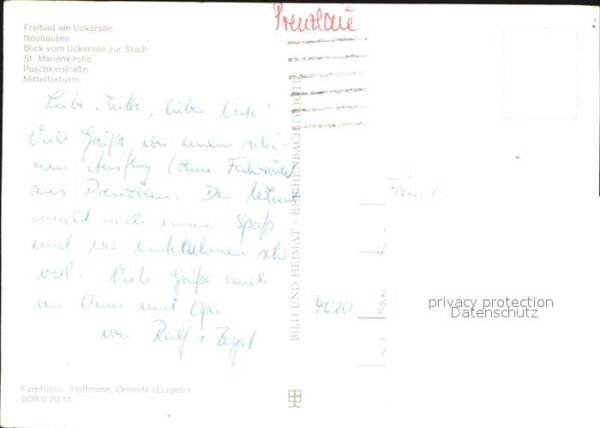 Prenzlau
Freibad am Uckersee
Neubauten
Blick vom Uckersee zur Stadt
St. Marienkirche
Puschkinstraße
Mitteltorturm
Liebe
Viele Grüße von einem schö-
nen Ausflug (ohne Fahrräder)
aus Prenzlau. Der
macht noch immer Spaß
und wir unternehmen sehr
viel. Viele Grüße auch
an Oma und Opa
von Ralf +
BILD UND HEIMAT · REICHENBACH (VOGTL)
Fam
4020
privacy protection
Datenschutz
Farbfotos: Hoffmann, Oelsnitz (Erzgeb)
DDR 0,20 M